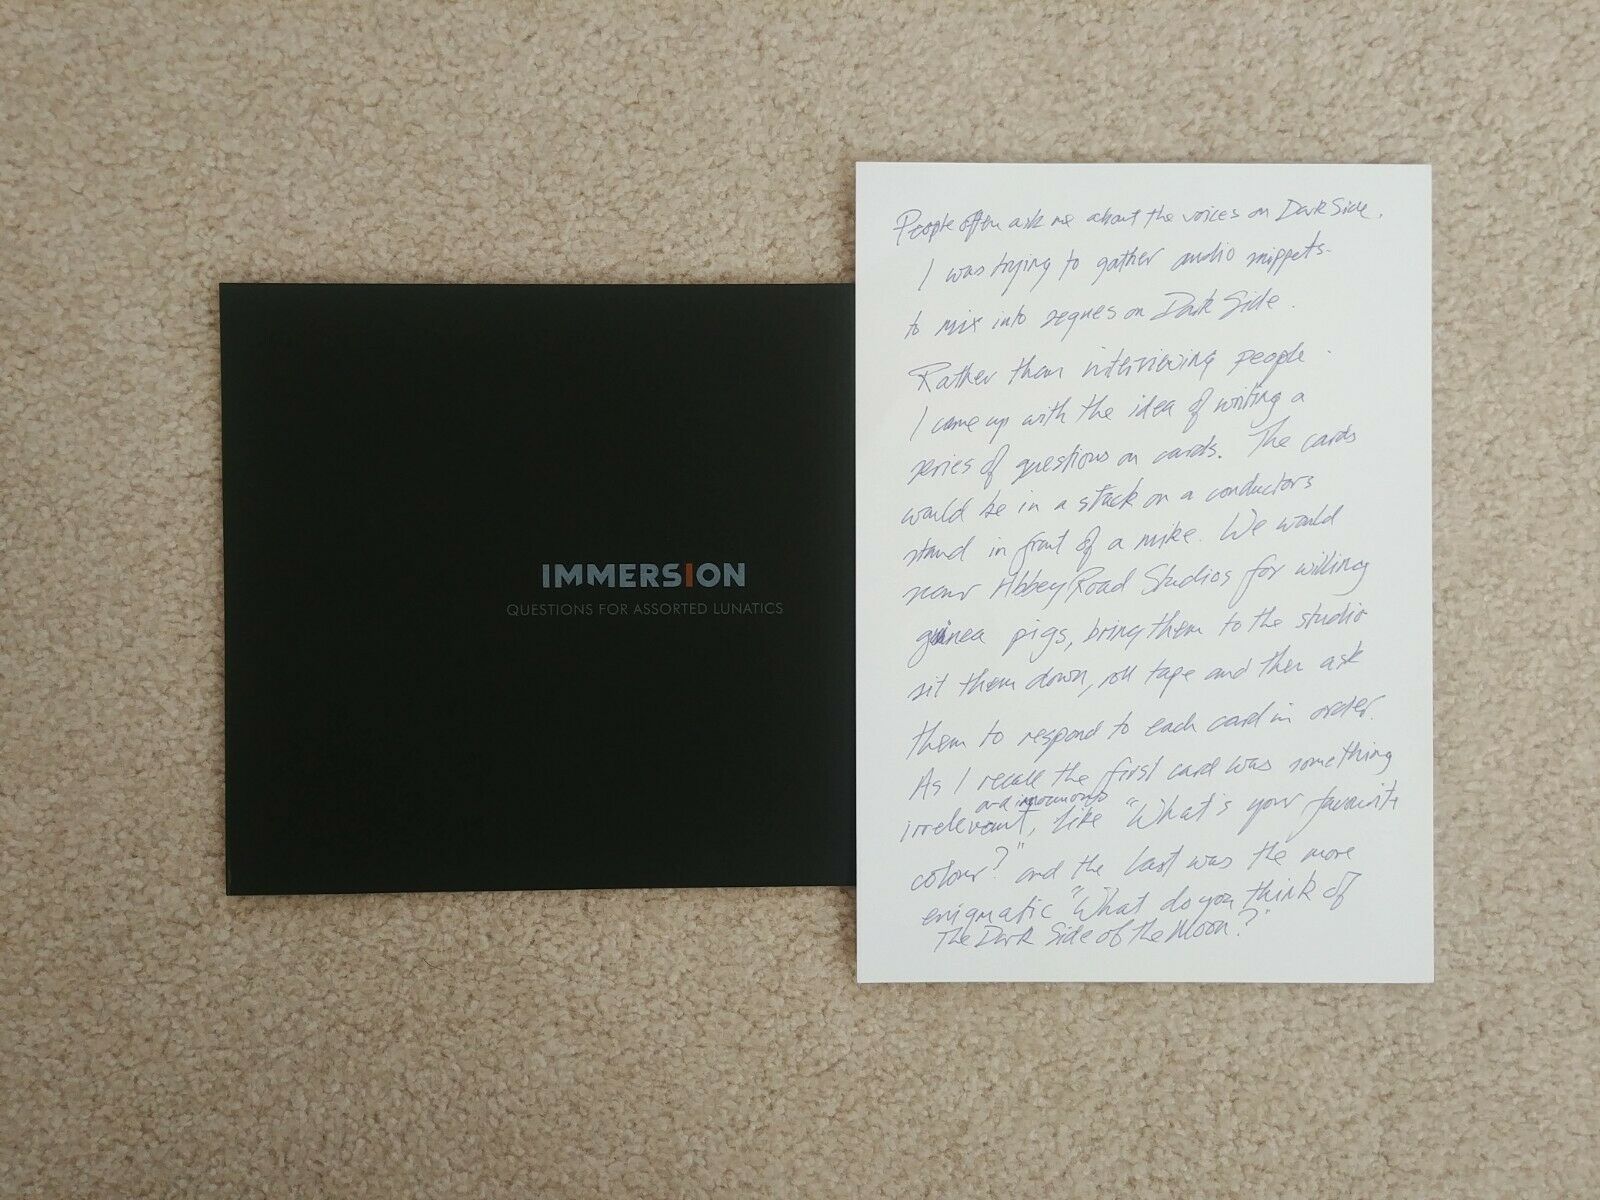 IMMERSION
QUESTIONS FOR ASSORTED LUNATICS
People often ask me about the voices on Dark Side.
I was trying to gather audio snippets
to mix into segues on Dark Side.
Rather than interviewing people
I came up with the idea of writing a
series of questions on cards. The cards
would be in a stack on a conductors
stand in front of a mike. We would
scour Abbey Road Studios for willing
guinea pigs, bring them to the studio
sit them down, roll tape and then ask
them to respond to each card in order.
As I recall the first card was something
and innocuous
irrelevant, like "What's your favourite
colour?" and the last was the more
enigmatic "What do you think of
The Dark Side of the Moon?"